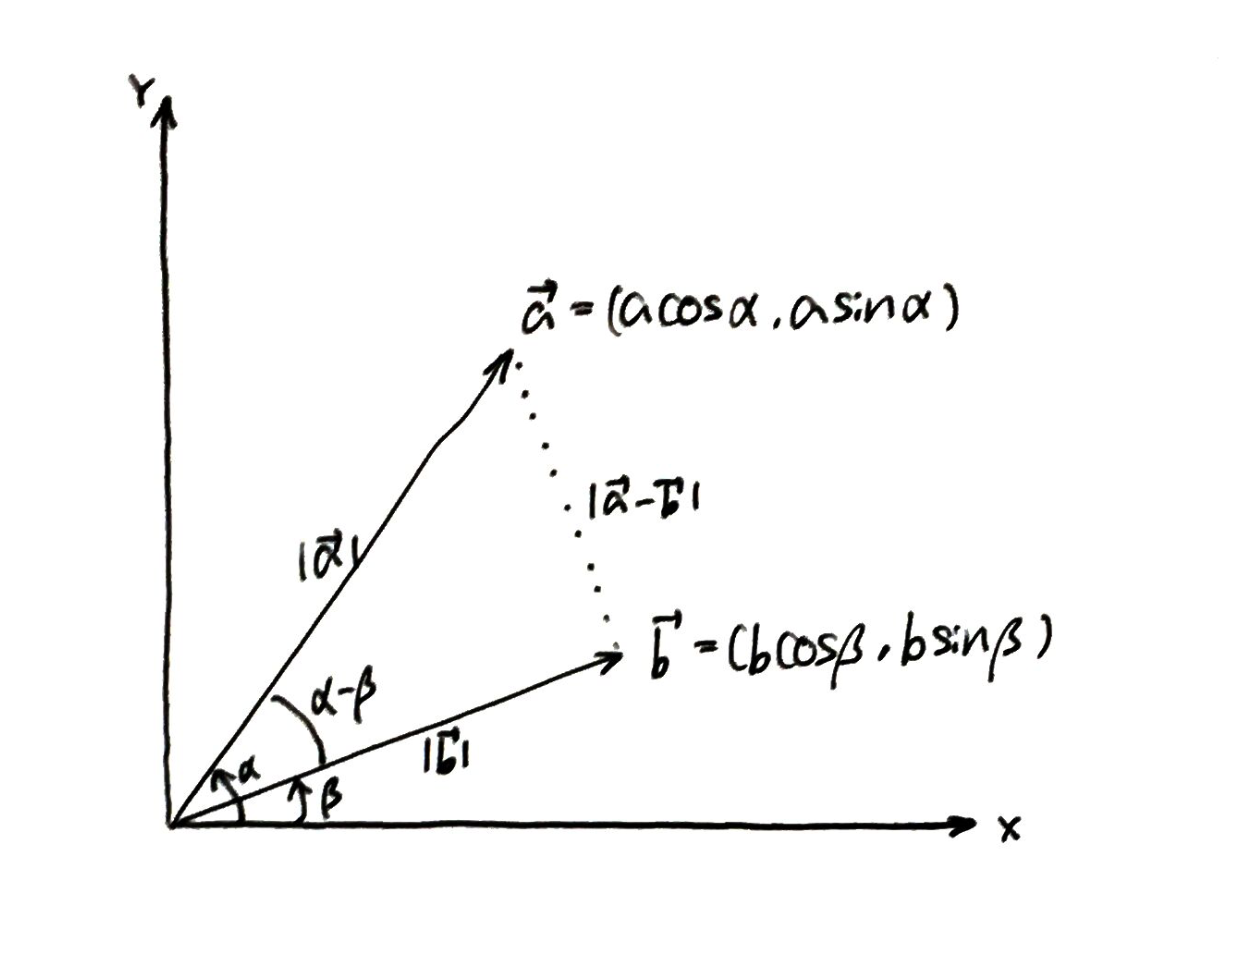 Y
a⃗ = (acosα, asinα)
|a⃗-b⃗|
|a⃗|
b⃗ = (bcosβ, bsinβ)
α-β
|b⃗|
α
β
X